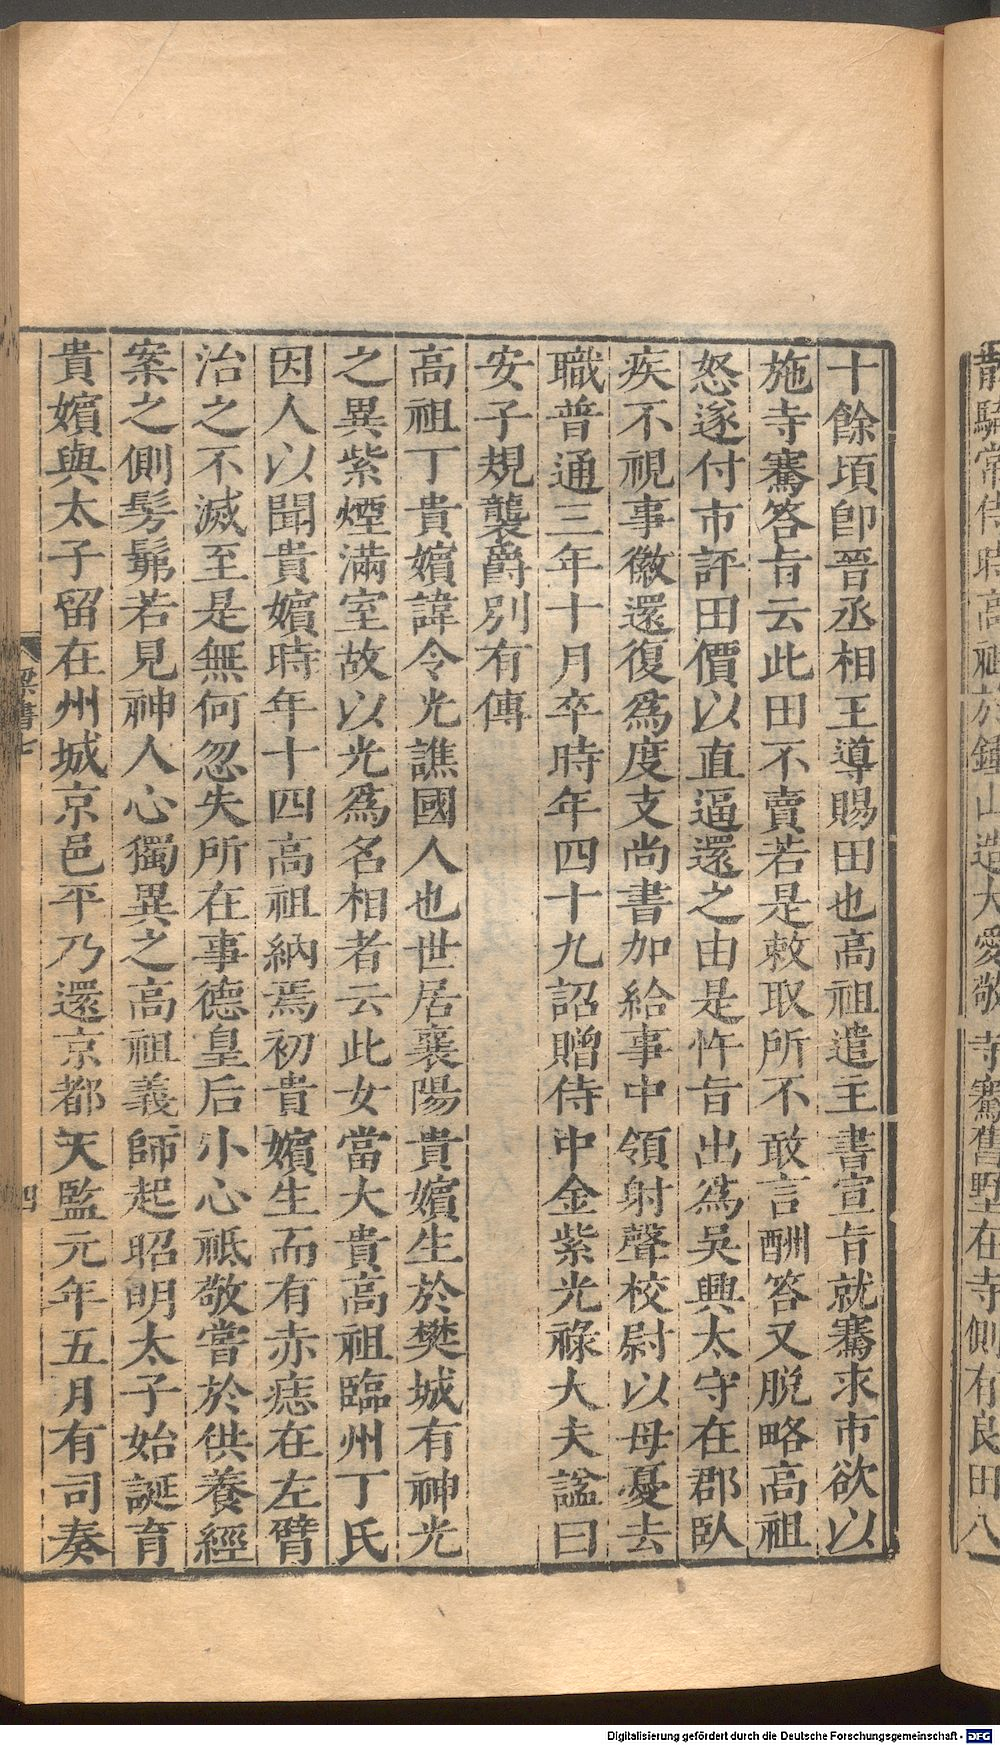 散騎常侍時高祖於鍾山造大愛敬寺騫舊墅在寺側有良田八
十餘頃卽晉丞相王導賜田也高祖遣主書宣旨就騫求市欲以
施寺騫答旨云此田不賣若是敕取所不敢言酬答又脫略高祖
怒遂付市評田價以直逼還之由是忤旨出爲吳興太守在郡臥
疾不視事徵還復爲度支尚書加給事中領射聲校尉以母憂去
職普通三年十月卒時年四十九詔贈侍中金紫光祿大夫諡曰
安子規襲爵別有傳
高祖丁貴嬪諱令光譙國人也世居襄陽貴嬪生於樊城有神光
之異紫煙滿室故以光爲名相者云此女當大貴高祖臨州丁氏
因人以聞貴嬪時年十四高祖納焉初貴嬪生而有赤痣在左臂
治之不滅至是無何忽失所在事德皇后小心祗敬嘗於供養經
案之側髣髴若見神人心獨異之高祖義師起昭明太子始誕育
貴嬪與太子留在州城京邑平乃還京都天監元年五月有司奏
梁書七
四
Digitalisierung gefördert durch die Deutsche Forschungsgemeinschaft - DFG